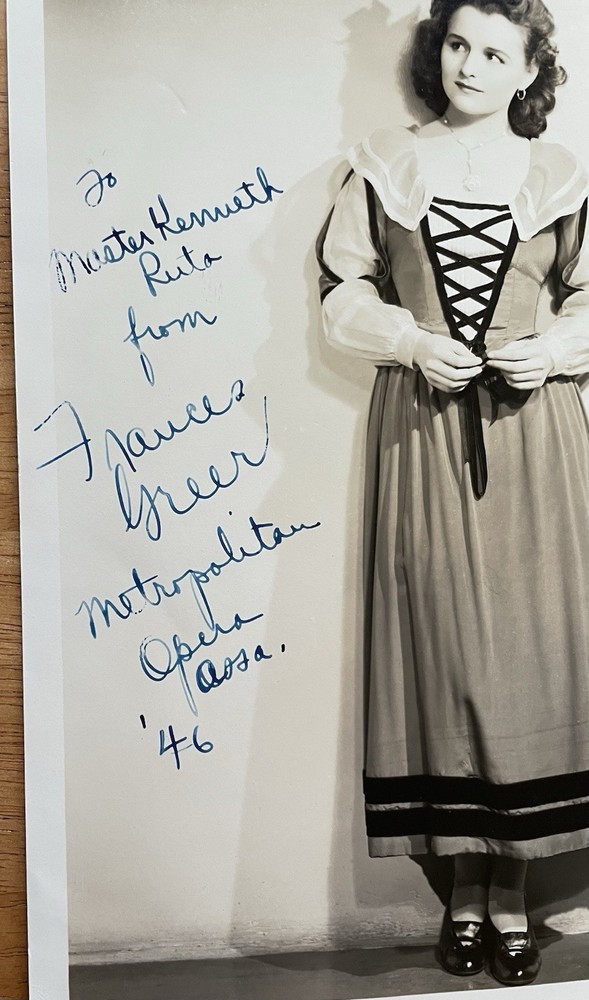 To
Master Kenneth
Ruta
from
Frances
Greer
Metropolitan
Opera
Assa.
'46